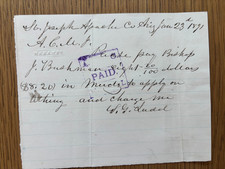 St. Joseph Apache Co Ariz Jan 23d 1891
A. C. M. I.
Please pay Bishop
J. Bushman Eight 20/100 dollars
PAID
($8.20) in Mercds to apply on
tithing and charge me